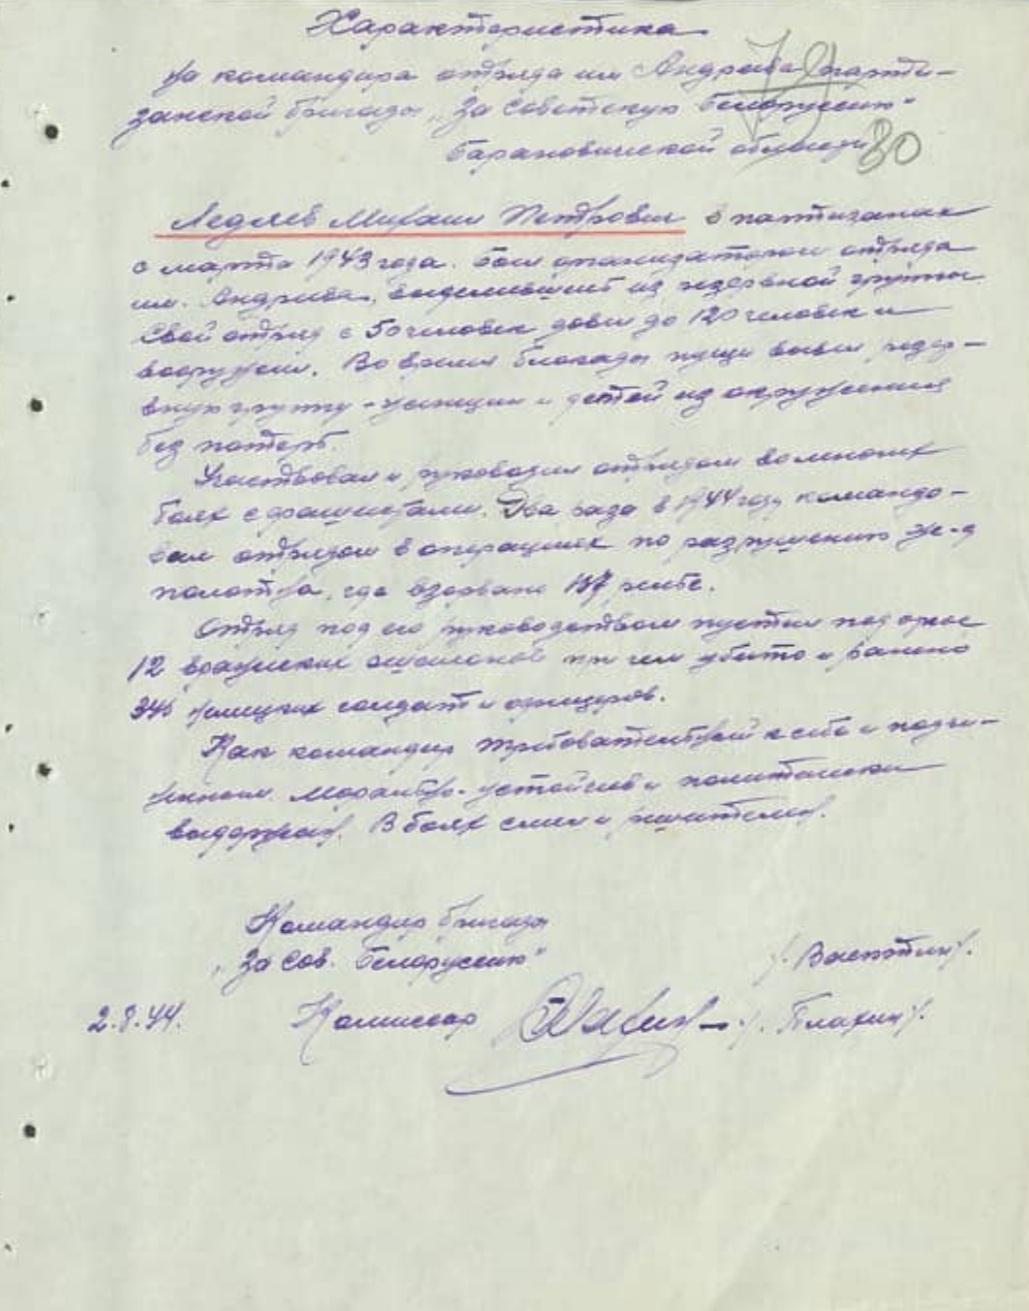 Характеристика
На командира отряда им Андреева парти-
занской бригады „За советскую Белоруссию"
Барановичской области
80
Ледяев Михаил Петрович в партизанах
с марта 1943 года. был организатором отряда
им. Андреева, выделившего из резервной группы
Свой отряд с 50 человек довел до 120 человек и
вооружил. Во время блокады пущи вывел резер-
вную группу - женщин и детей из окружения
без потерь.
Участвовал и руководил отрядом во многих
боях с фашистами. Два раза в 1944 году командо-
вал отрядом в операциях по разрушению ж-д
полотна, где взорвано рельс.
Отряд под его руководством пустил под откос
12 вражеских эшелонов при чем убито и ранено
345 немецких солдат и офицеров.
Как командир требовательный к себе и подчи-
ненным. Морально-устойчив и политически
выдержан. В боях смел и решителен.
Командир бригады
„За Сов. Белоруссию"
2.8.44. Комиссар